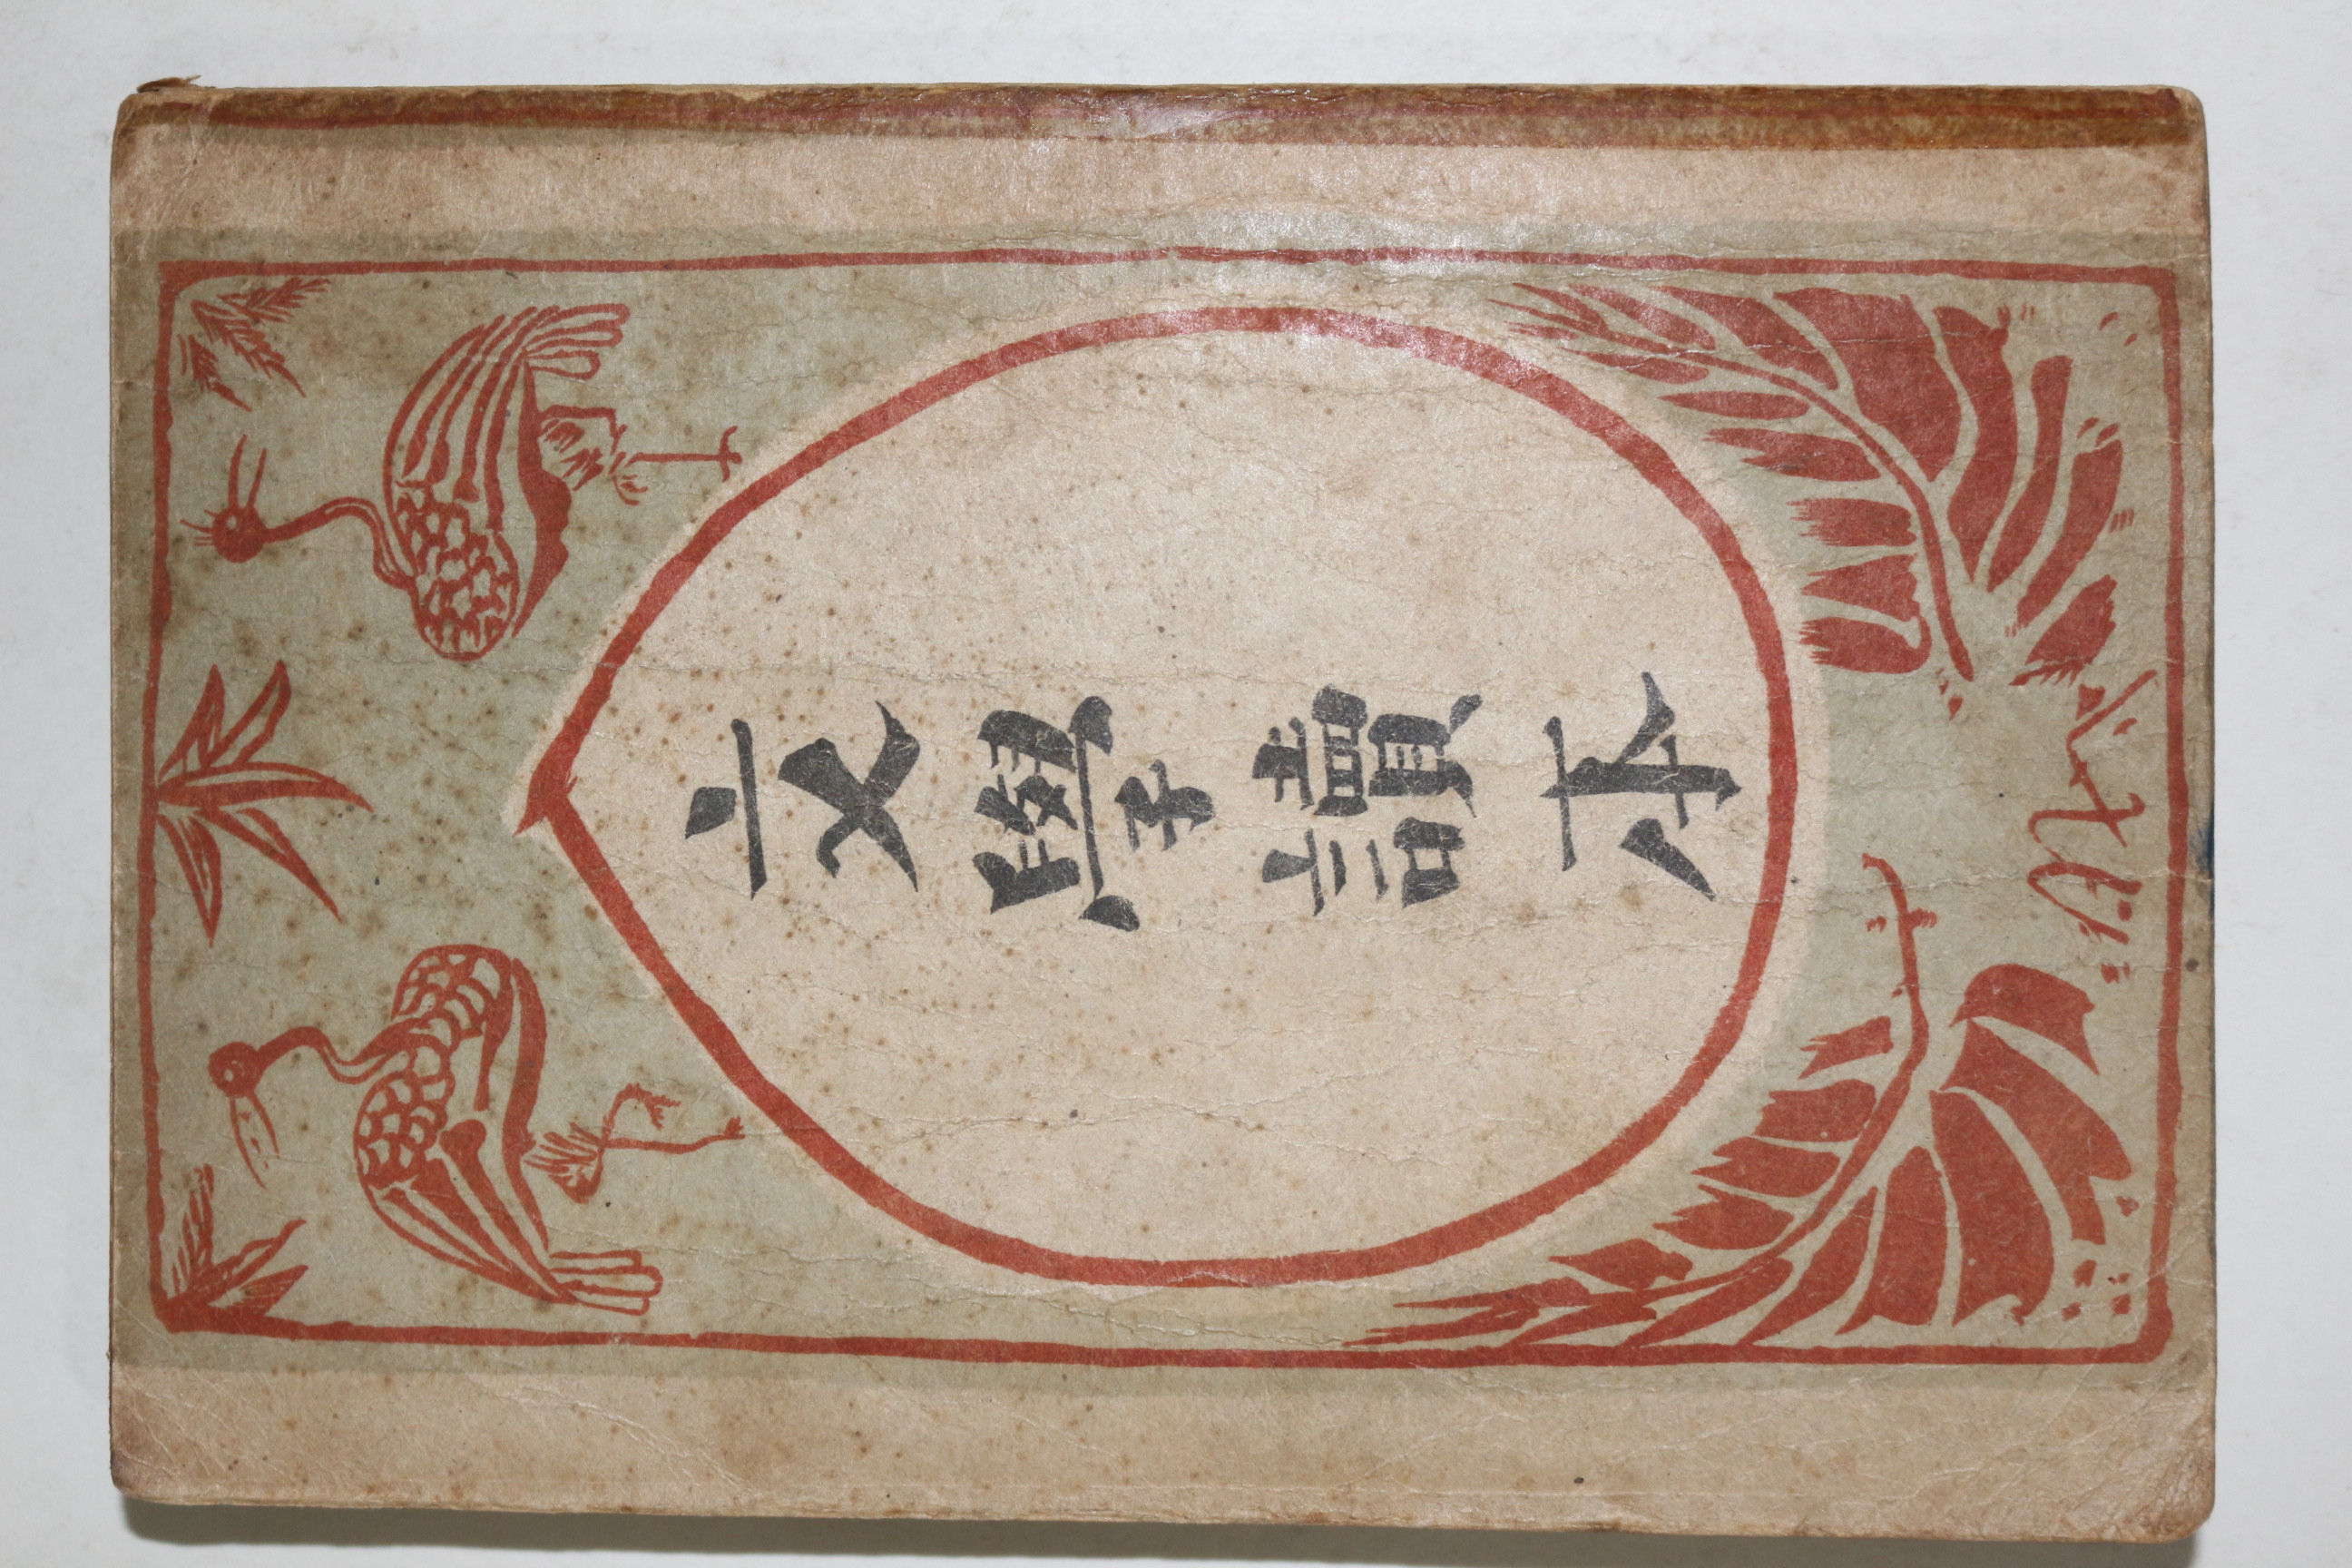 文學讀本